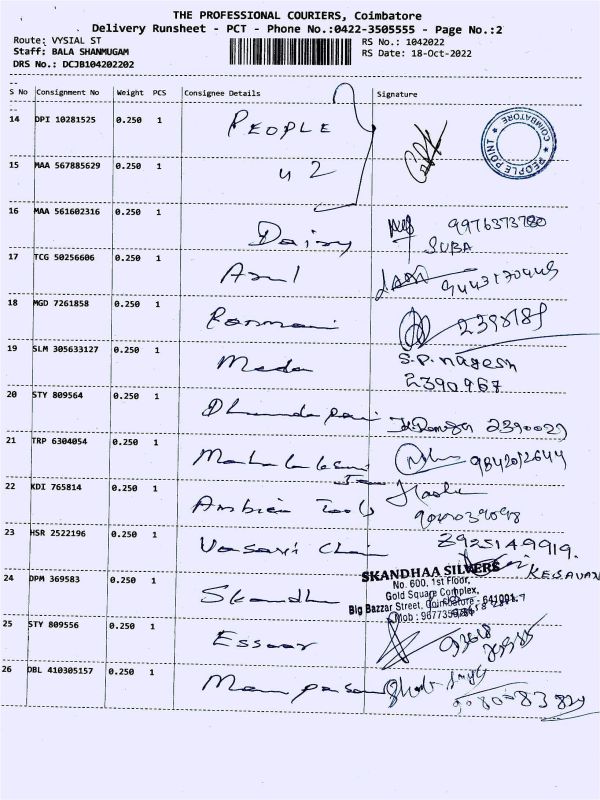 THE PROFESSIONAL COURIERS, Coimbatore
Delivery Runsheet - PCT - Phone No.:0422-3505555 - Page No.:2
Route: VYSIAL ST
RS No.: 1042022
Staff: BALA SHANMUGAM
RS Date: 18-Oct-2022
DRS No.: DCJB104202202
S No Consignment No Weight PCS Consignee Details Signature
14 DPI 10281525 0.250 1 PEOPLE
PEOPLE POINT ★ COIMBATORE ★
15 MAA 567885629 0.250 1 4 2
16 MAA 561602316 0.250 1 Daisy
SUBA
17 TCG 50256606 0.250 1
18 MGD 7261858 0.250 1
19 SLM 305633127 0.250 1 S.P. nagesh
2390967
20 STY 809564 0.250 1 Dhandapani 2390029
21 TRP 6304054 0.250 1 9842012644
22 KDI 765814 0.250 1 Ambica Tools
23 HSR 2522196 0.250 1 Vasavi Chain
KESAVAN
24 DPM 369583 0.250 1 Skandha
SKANDHAA SILVERS
No. 600, 1st Floor,
Gold Square Complex,
Big Bazzar Street, Coimbatore - 641001.
25 STY 809556 0.250 1 Essaar
26 DBL 410305157 0.250 1